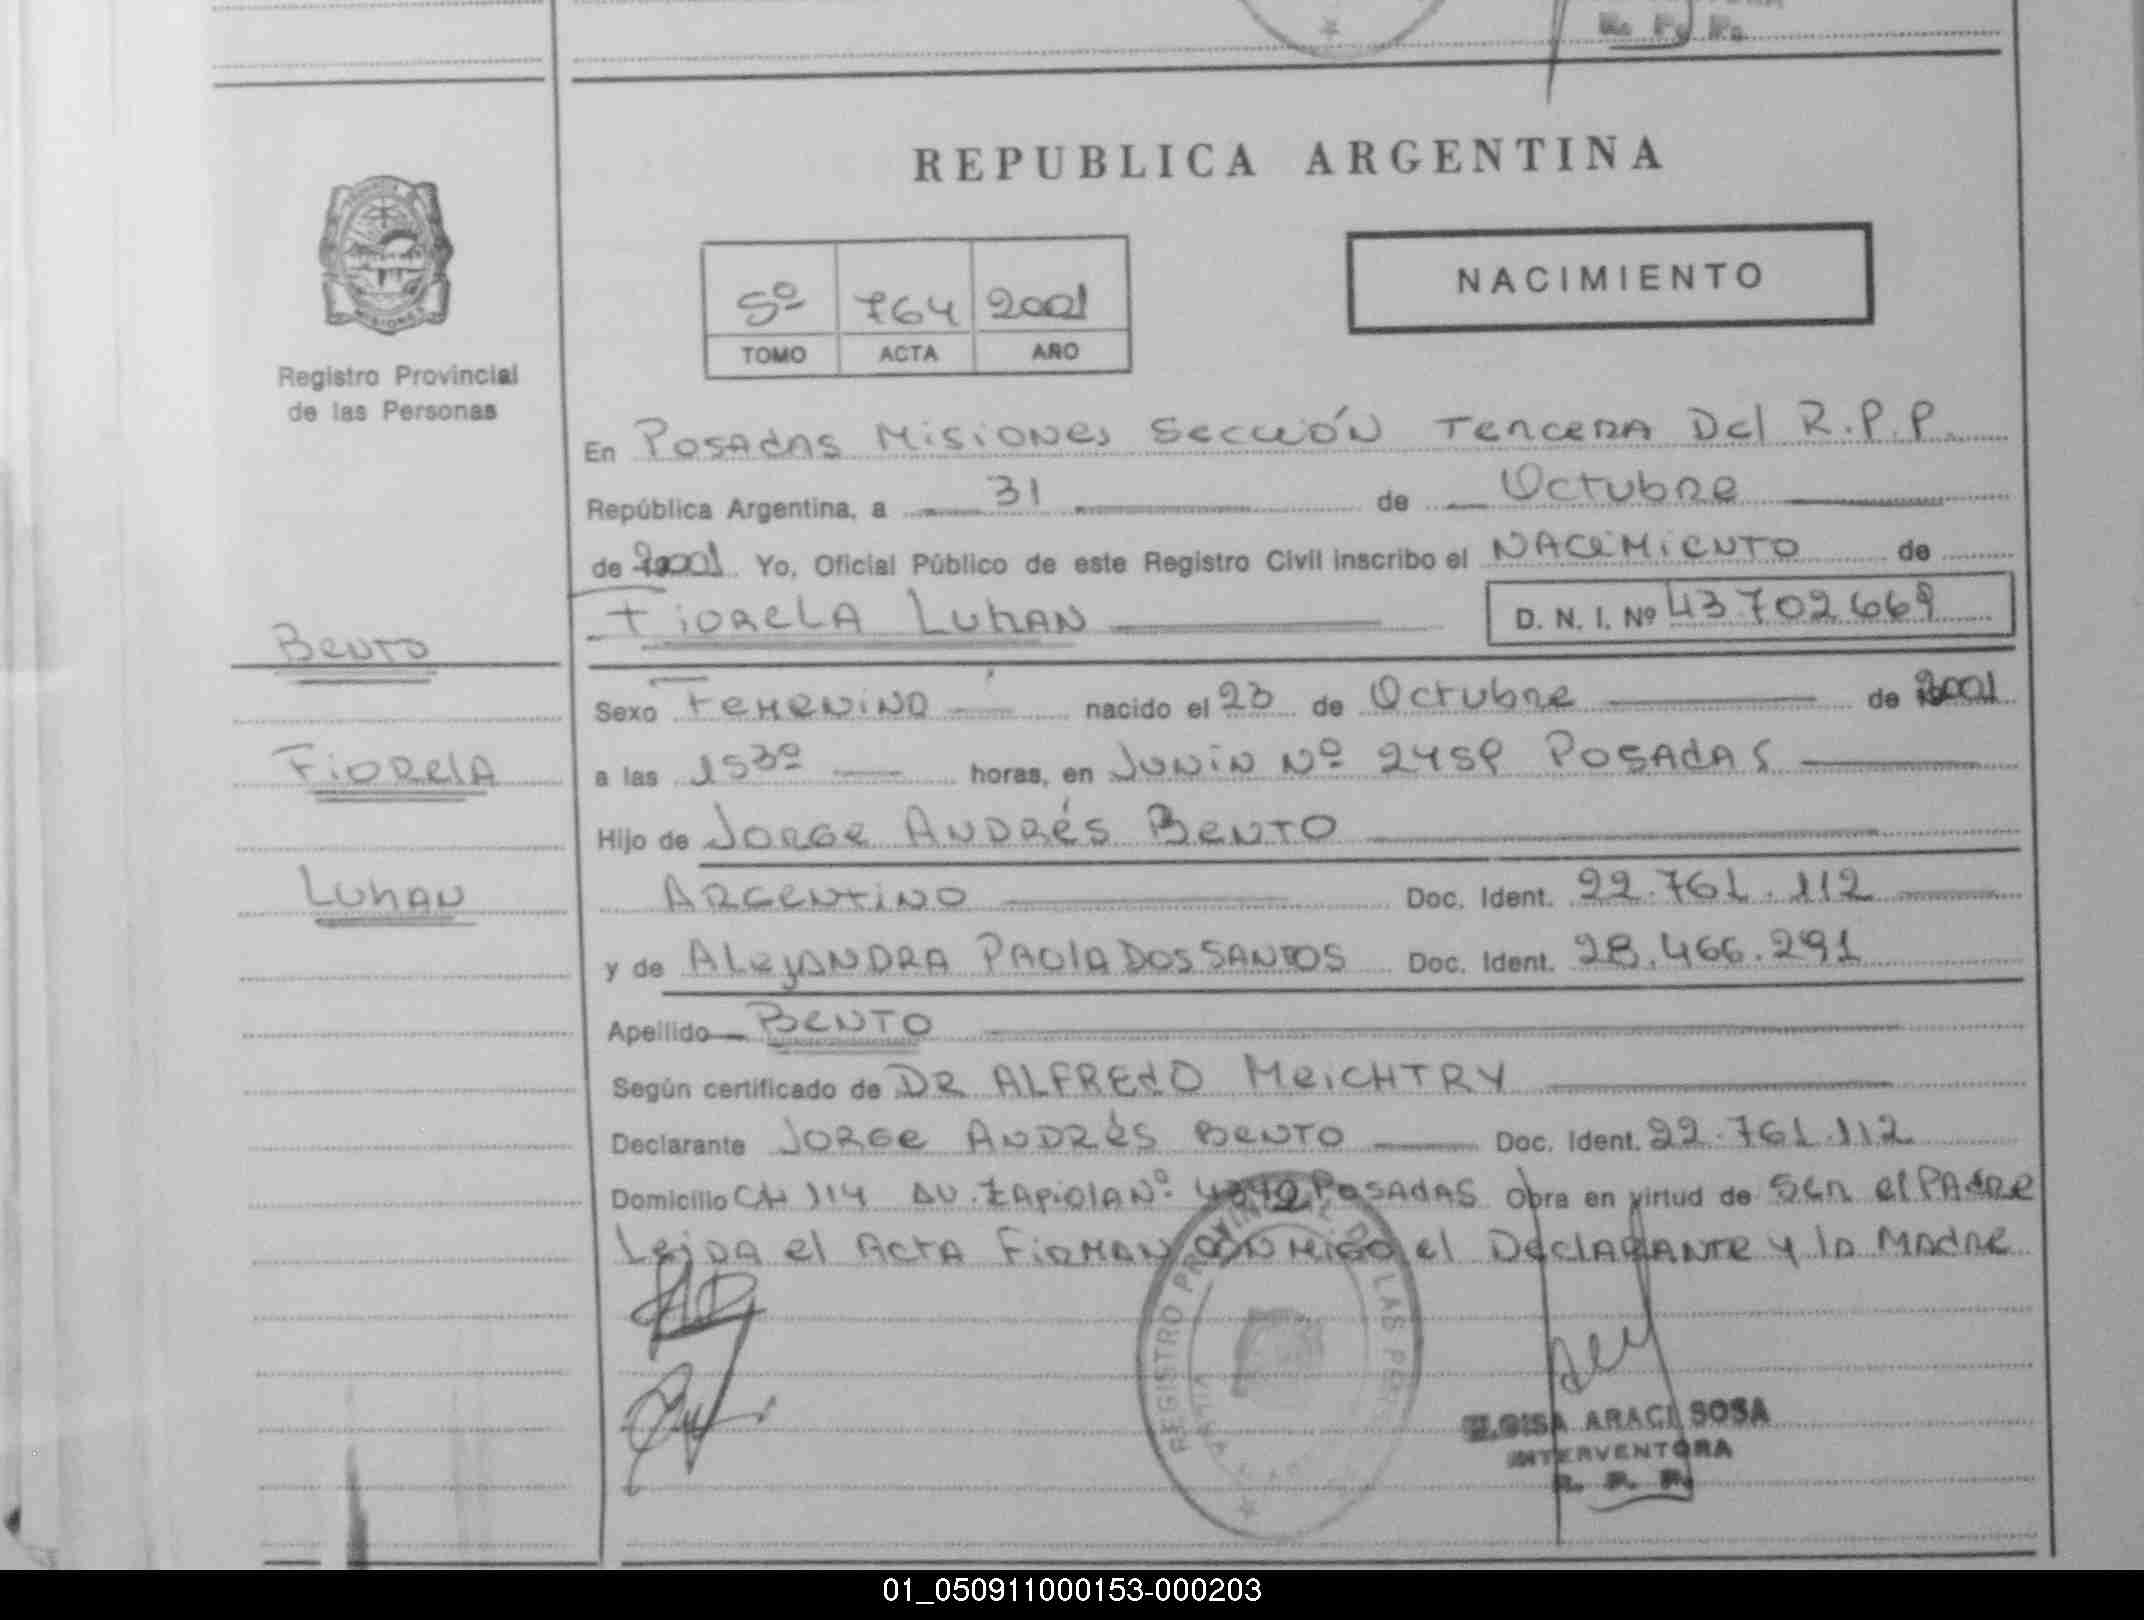 R. P. P.
REPUBLICA ARGENTINA
NACIMIENTO
5º 764 2001
TOMO ACTA AÑO
MISIONES
Registro Provincial
de las Personas
En Posadas Misiones Sección Tercera Del R.P.P.
República Argentina, a 31 de Octubre
de 2001 Yo, Oficial Público de este Registro Civil inscribo el NACIMIENTO de
Fiorela Luhan D. N. I. Nº 43702669
Bento
Sexo Femenino nacido el 23 de Octubre de 2001
Fiorela
a las 15³º horas, en Junin Nº 2459 Posadas
Hijo de Jorge Andrés Bento
Luhan
Argentino Doc. Ident. 22.761.112
y de Alejandra Paola Dos Santos Doc. Ident. 28.466.291
Apellido Bento
Según certificado de DR ALFREDO MEICHTRY
Declarante Jorge Andrés Bento Doc. Ident. 22.761.112
Domicilio CH 114 AV. Zapiola Nº Posadas Obra en virtud de Ser el Padre
Leida el Acta Firman conmigo el Declarante y la Madre
REGISTRO PROVINCIAL DE LAS
ARACI SOSA
INTERVENTORA
R. P. P.
01_050911000153-000203